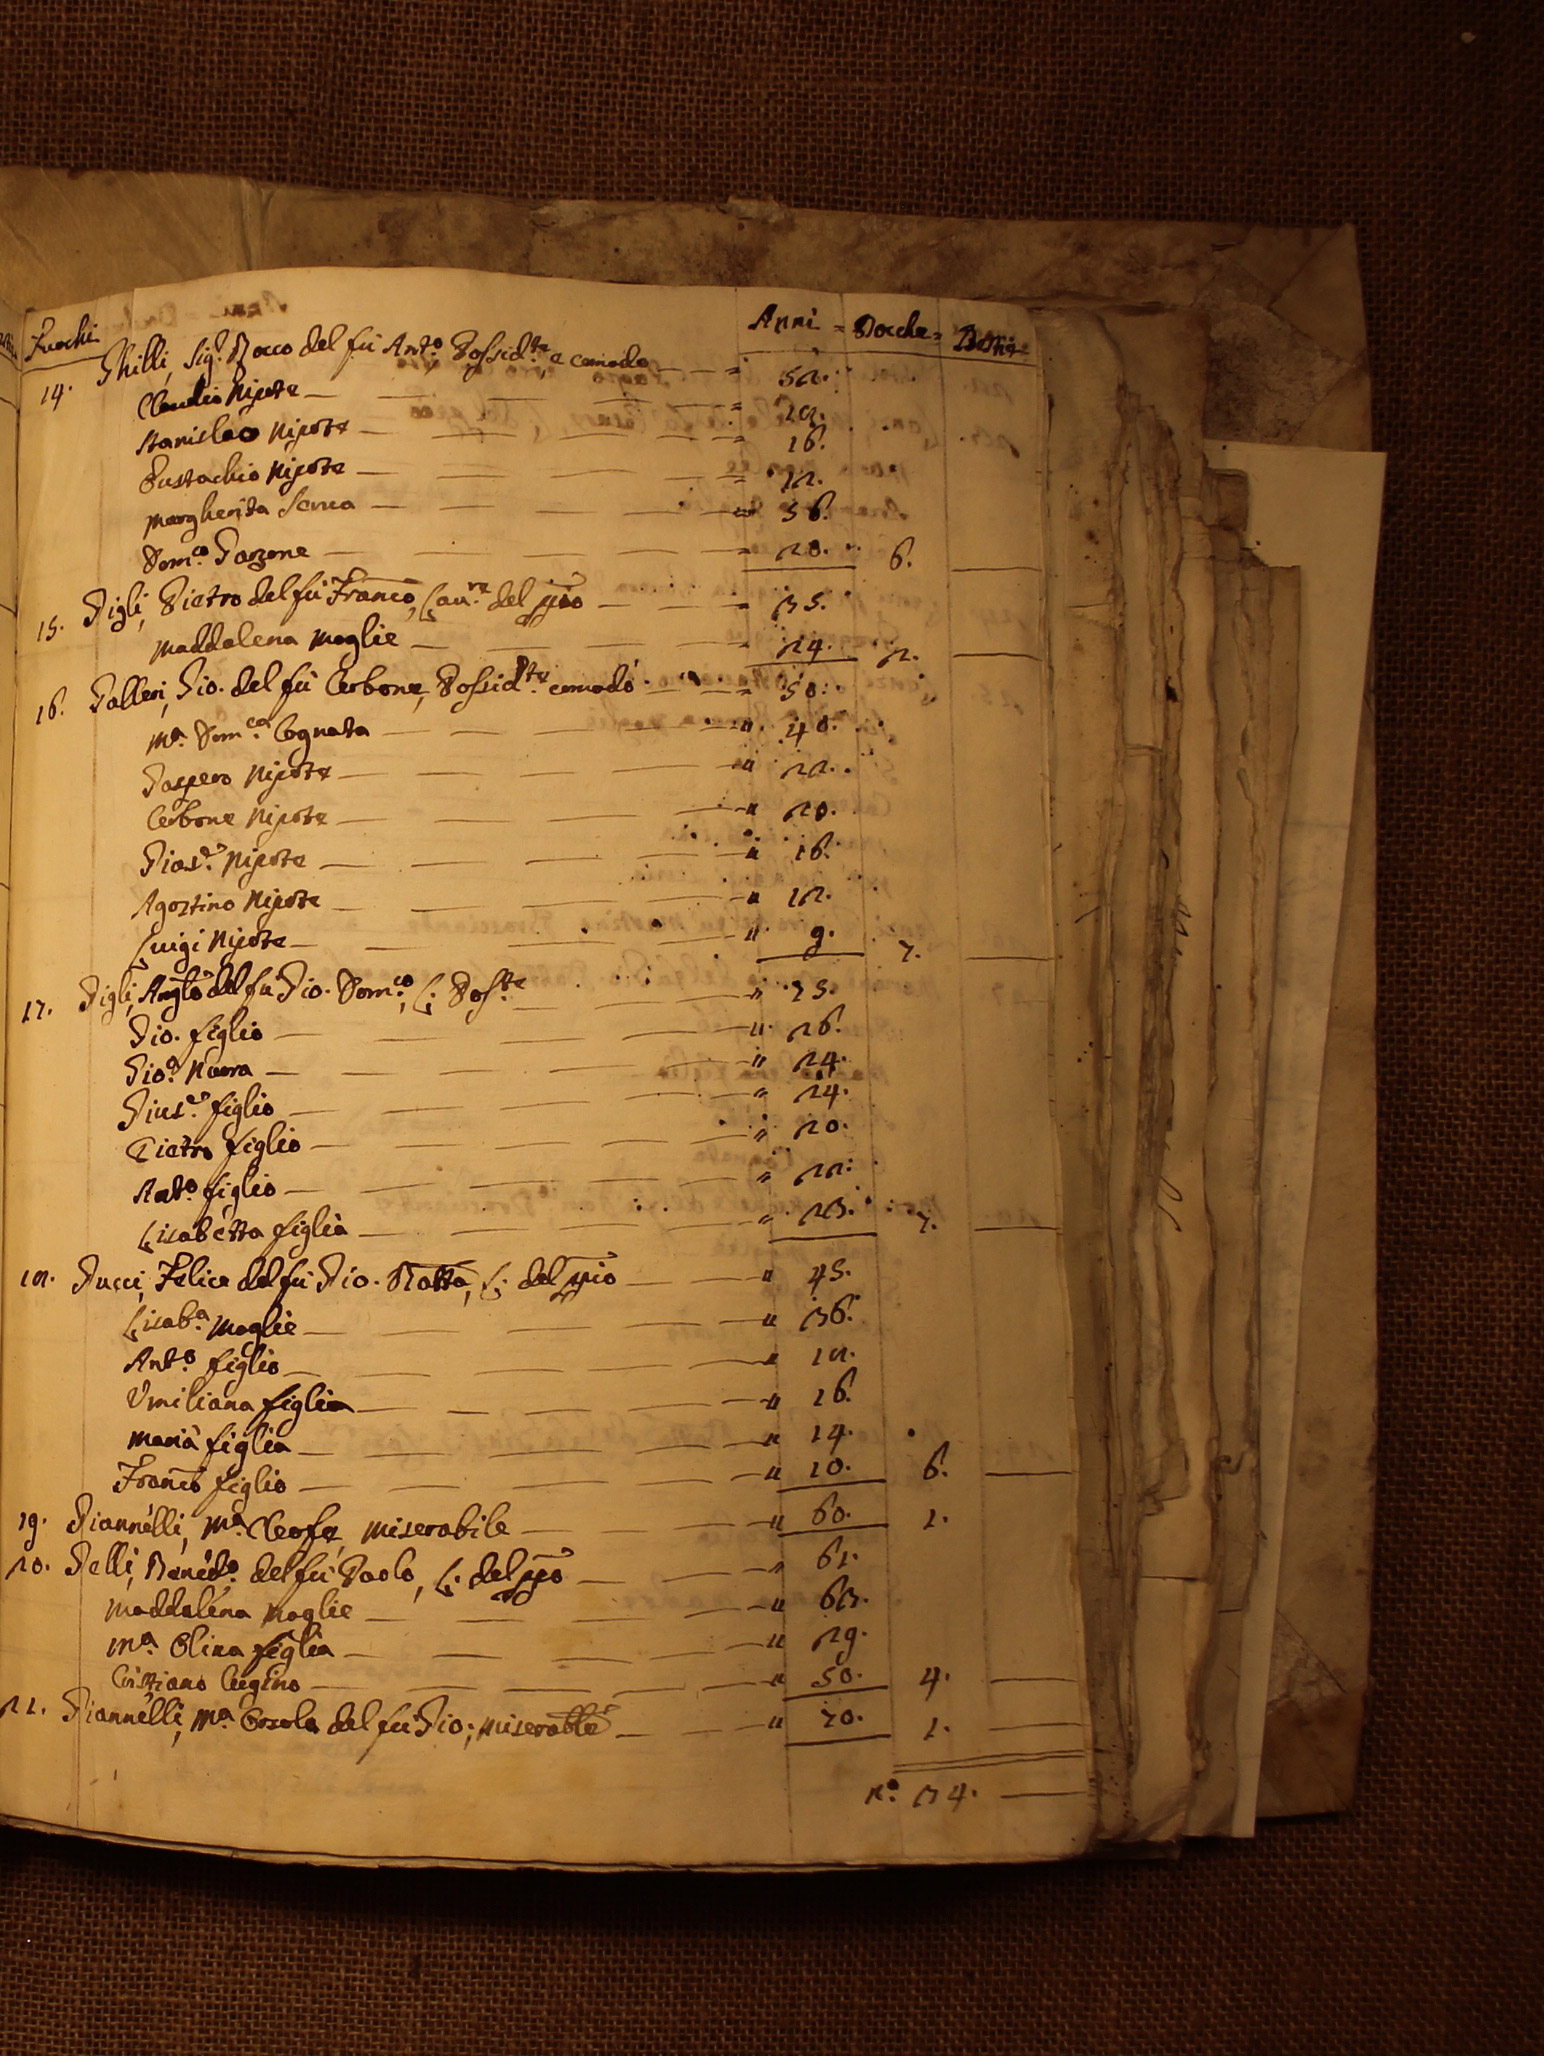 Fuochi Anni = Bocche = Bestie
14. Ghilli, Sig.r Rocco del fù Ant.o Possid.te, e comodo = 52.
Claudio Nipote = 18.
Stanislao Nipote = 16.
Eustachio Nipote = 12.
Margherita Serva = 56.
Dom.co Garzone = 20. 6.
15. Gigli, Pietro del fù Franco, Lav.re del pio = 35.
Maddalena Moglie = 24. 2.
16. Galleri, Gio. del fù Cerbone, Possid.te comodo = 50.
M.a Dom.ca Cognata " 40.
Gaspero Nipote " 22.
Cerbone Nipote " 20.
Gius.e Nipote " 16.
Agostino Nipote " 12.
Luigi Nipote " 9. 7.
17. Gigli, Anglo del fù Gio. Dom.co, L. Pos.te " 75.
Gio. figlio " 26.
Gio.a Nuora " 24.
Gius.e figlio " 24.
Pietro figlio " 20.
Ant.o figlio " 22.
Lisabetta figlia " 23. 7.
18. Gucci, Felice del fù Gio. Batta, L. del pio " 45.
Lisab.a Moglie " 36.
Ant.o figlio " 18.
Umiliana figlia " 16.
Maria figlia " 14.
Franco figlio " 10. 6.
19. Giannelli, M.a Cleofe, Miserabile " 60. 1.
20. Gelli, Bened.o del fù Paolo, L. del pio " 61.
Maddalena Moglie " 63.
M.a Olina figlia " 29.
Cristiano Cugino " 50. 4.
21. Giannelli, M.a Orsola del fù Gio; Miserabile " 70. 1.
N.o 34.